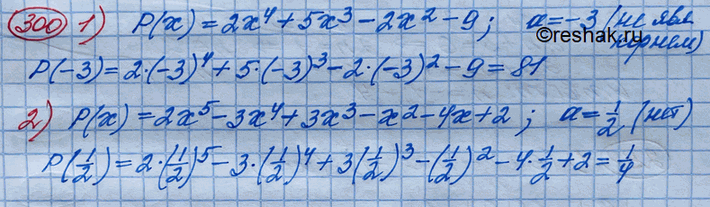 300 1) P(x) = 2x⁴ + 5x³ - 2x² - 9; a = -3 (не явл
©reshak.ru
корнем)
P(-3) = 2·(-3)⁴ + 5·(-3)³ - 2·(-3)² - 9 = 81
2) P(x) = 2x⁵ - 3x⁴ + 3x³ - x² - 4x + 2; a = 1/2 (нет)
P(1/2) = 2·(1/2)⁵ - 3·(1/2)⁴ + 3(1/2)³ - (1/2)² - 4·1/2 + 2 = 1/4